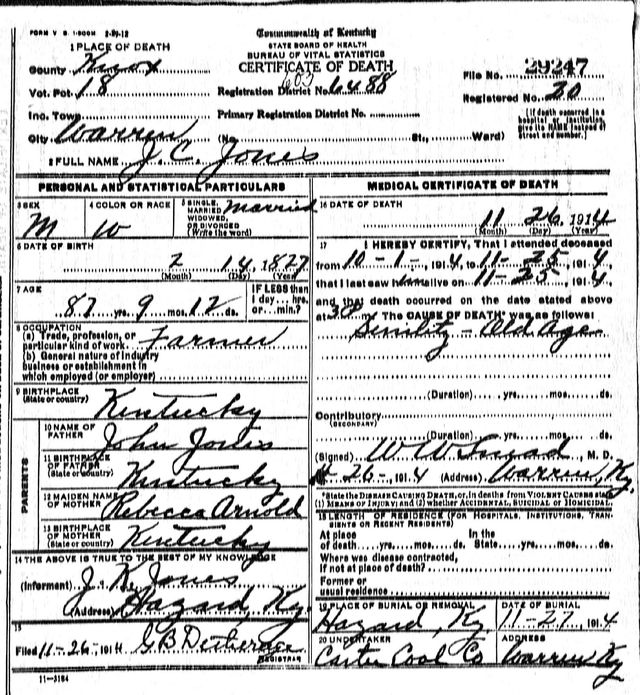 FORM V. S. 1-500M 2-21-12
Commonwealth of Kentucky
STATE BOARD OF HEALTH
BUREAU OF VITAL STATISTICS
CERTIFICATE OF DEATH
1 PLACE OF DEATH
County Knox
Vot. Pct 18
Inc. Town
City Warren
Registration District No. 6488
603
Primary Registration District No.
(No. St., Ward)
File No. 29247
Registered No. 20
(If death occurred in a hospital or institution, give its NAME instead of street and number.)
2 FULL NAME J. C. Jones
PERSONAL AND STATISTICAL PARTICULARS
3 SEX M
4 COLOR OR RACE W
5 SINGLE, MARRIED, WIDOWED, OR DIVORCED (Write the word) Married
6 DATE OF BIRTH
2 14, 1827
(Month) (Day) (Year)
7 AGE
87 yrs. 9 mos. 12 ds.
IF LESS than 1 day....hrs. or....min.?
8 OCCUPATION
(a) Trade, profession, or particular kind of work Farmer
(b) General nature of industry
business or establishment in
which employed (or employer)
9 BIRTHPLACE
(State or country) Kentucky
PARENTS
10 NAME OF FATHER John Jones
11 BIRTHPLACE OF FATHER (State or country) Kentucky
12 MAIDEN NAME OF MOTHER Rebecca Arnold
13 BIRTHPLACE OF MOTHER (State or country) Kentucky
14 THE ABOVE IS TRUE TO THE BEST OF MY KNOWLEDGE
(Informant) J. K. Jones
(Address) Hazard, Ky
15
Filed 11-26-, 1914 G B
REGISTRAR
11-3184
MEDICAL CERTIFICATE OF DEATH
16 DATE OF DEATH
11 26, 1914
(Month) (Day) (Year)
17 I HEREBY CERTIFY, That I attended deceased
from 10-1-, 1914, to 11-25, 1914
that I last saw him alive on 11-25, 1914
and that death occurred on the date stated above
at The CAUSE OF DEATH* was as follows:
Senility - Old Age
(Duration) yrs. mos. ds.
Contributory
(SECONDARY)
(Duration) yrs. mos. ds.
(Signed) W. W. , M. D.
11-26-, 1914 (Address) Warren, Ky.
*State the DISEASE CAUSING DEATH, or, in deaths from VIOLENT CAUSES state (1) MEANS OF INJURY; and (2) whether ACCIDENTAL, SUICIDAL or HOMICIDAL.
18 LENGTH OF RESIDENCE (FOR HOSPITALS, INSTITUTIONS, TRANSIENTS OR RECENT RESIDENTS)
At place of death....yrs....mos....ds. In the State....yrs....mos....ds.
Where was disease contracted,
if not at place of death?
Former or
usual residence
19 PLACE OF BURIAL OR REMOVAL
Hazard, Ky
DATE OF BURIAL
11-27, 1914
20 UNDERTAKER
Carter Coal Co
ADDRESS
Warren Ky